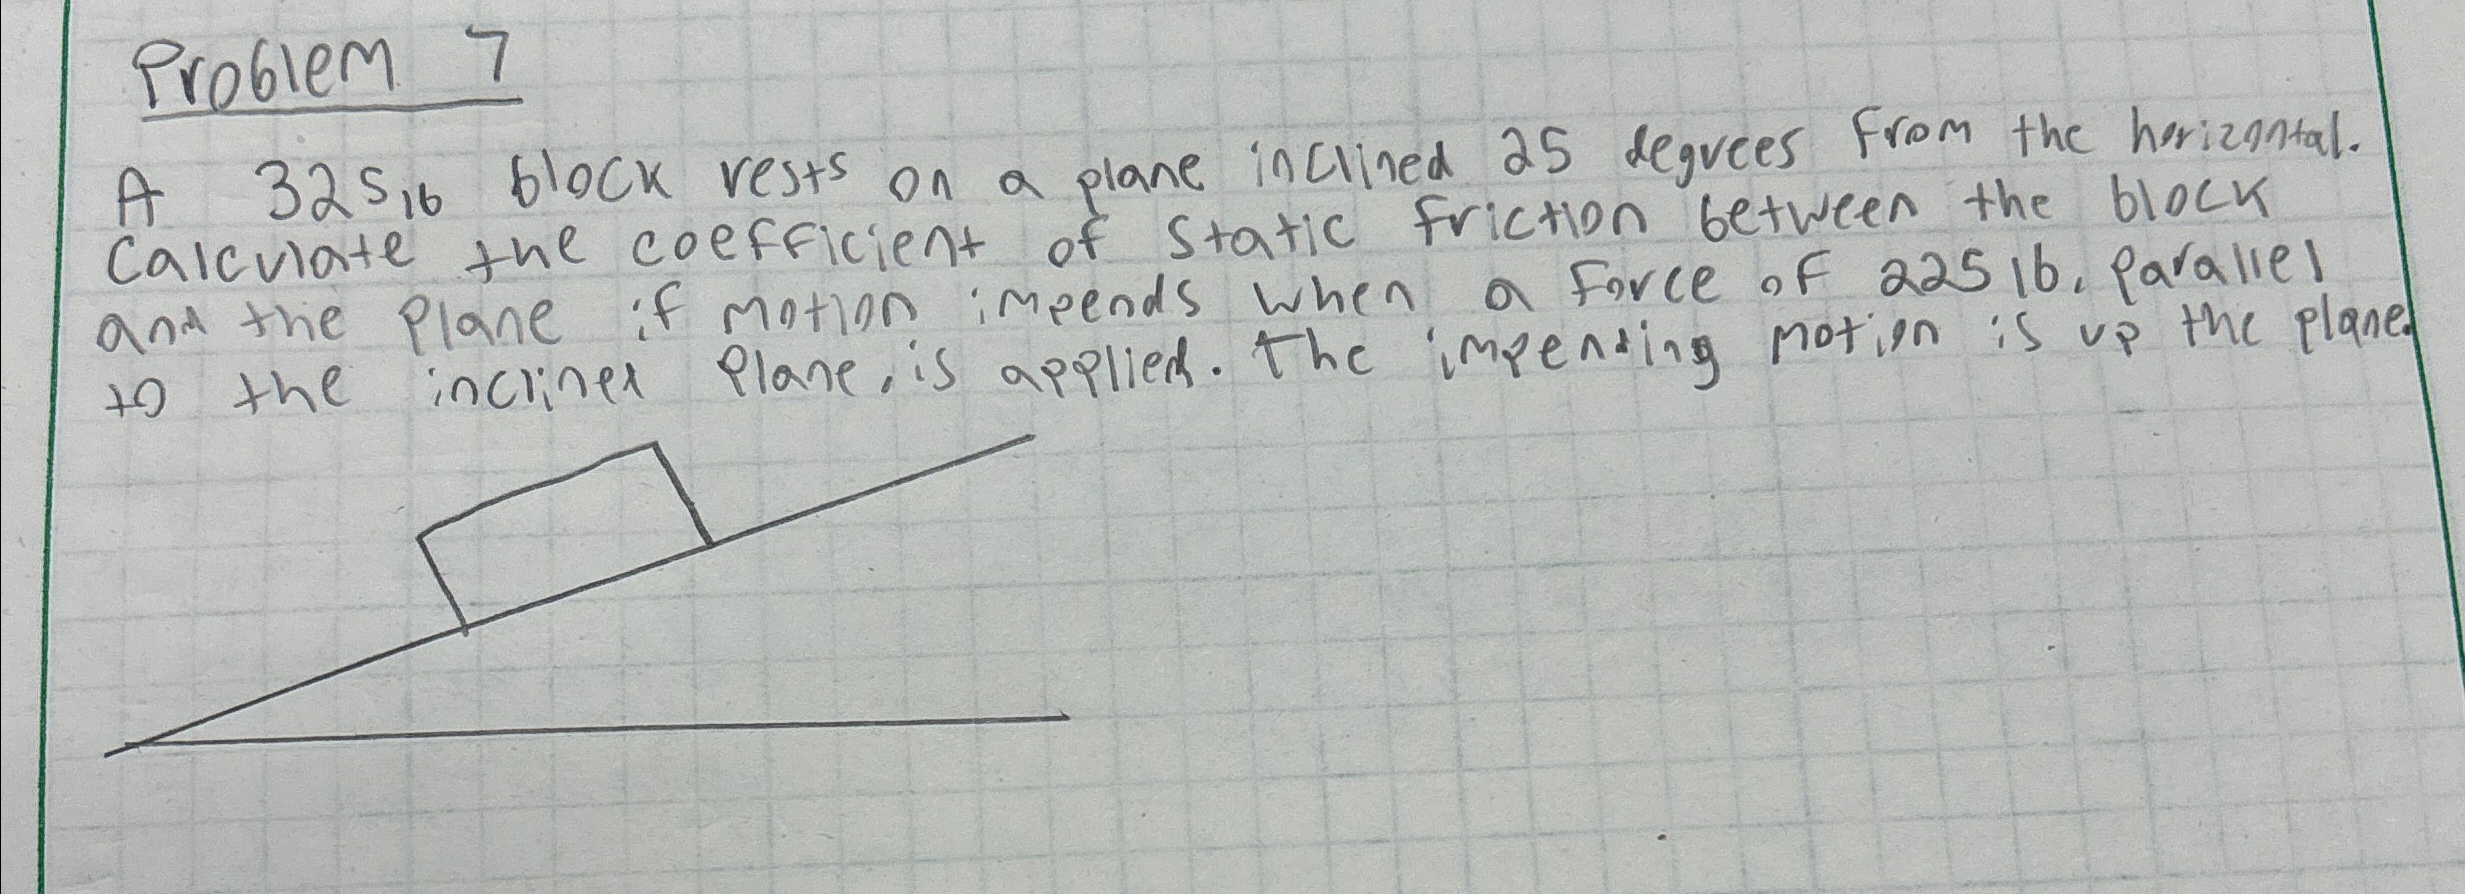 Problem 7
A 325 lb block rests on a plane inclined 25 degrees from the horizontal.
Calculate the coefficient of static friction between the block
and the plane if motion impends when a force of 225 lb, parallel
to the inclined plane, is applied. The impending motion is up the plane.